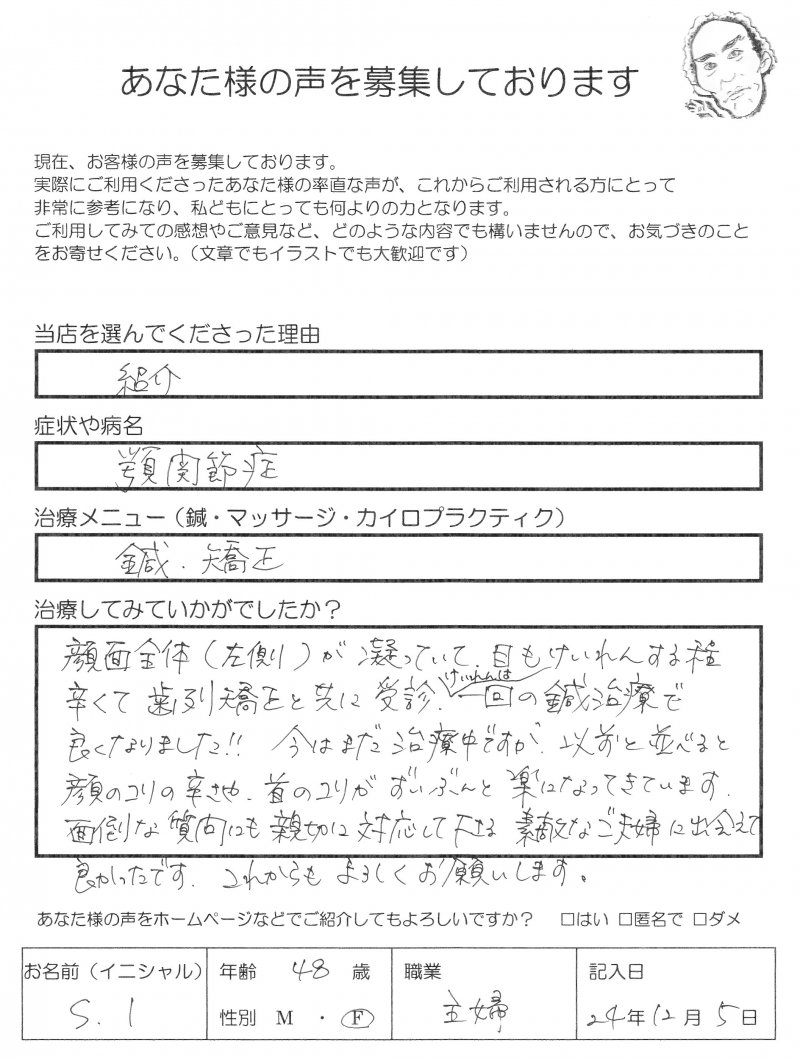 あなた様の声を募集しております
現在、お客様の声を募集しております。
実際にご利用くださったあなた様の率直な声が、これからご利用される方にとって
非常に参考になり、私どもにとっても何よりの力となります。
ご利用してみての感想やご意見など、どのような内容でも構いませんので、お気づきのこと
をお寄せください。（文章でもイラストでも大歓迎です）
当店を選んでくださった理由
紹介
症状や病名
顎関節症
治療メニュー（鍼・マッサージ・カイロプラクティク）
鍼．矯正
治療してみていかがでしたか？
顔面全体（左側）が凝っていて、目もけいれんする程
辛くて歯列矯正と共に受診．けいれんは一回の鍼治療で
良くなりました!! 今はまだ治療中ですが、以前と並べると
顔のコリの辛さや、首のコリがずいぶんと楽になってきています．
面倒な質問にも親切に対応して下さる素敵なご夫婦に出会えて
良かったです．これからもよろしくお願いします。
あなた様の声をホームページなどでご紹介してもよろしいですか？ □はい □匿名で □ダメ
お名前（イニシャル） 年齢 48 歳 職業 記入日
S. I 性別 M ・ F 主婦 24年12月5日